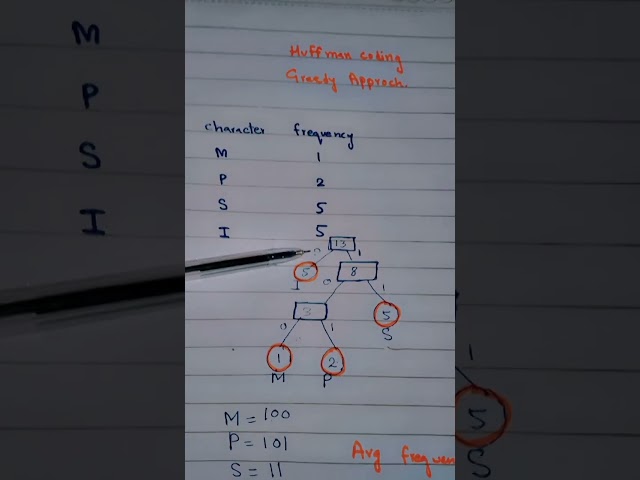 Huffman coding
Greedy Approch.
character frequency
M 1
P 2
S 5
I 5
13
0 1
5 8
I 0 1
3 5
S
0 1
1 2
M P
M = 100
P = 101
S = 11
Avg frequen